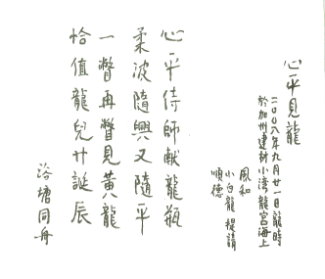 心平見龍
二〇〇八年九月廿一日龍時
於加州建材小灣龍宮海上
風和
小白龍 提請
順德
心平侍師獻龍瓶
柔波隨興又隨平
一瞥再瞥見黃龍
恰值龍兒廿誕辰
浴塘同舟